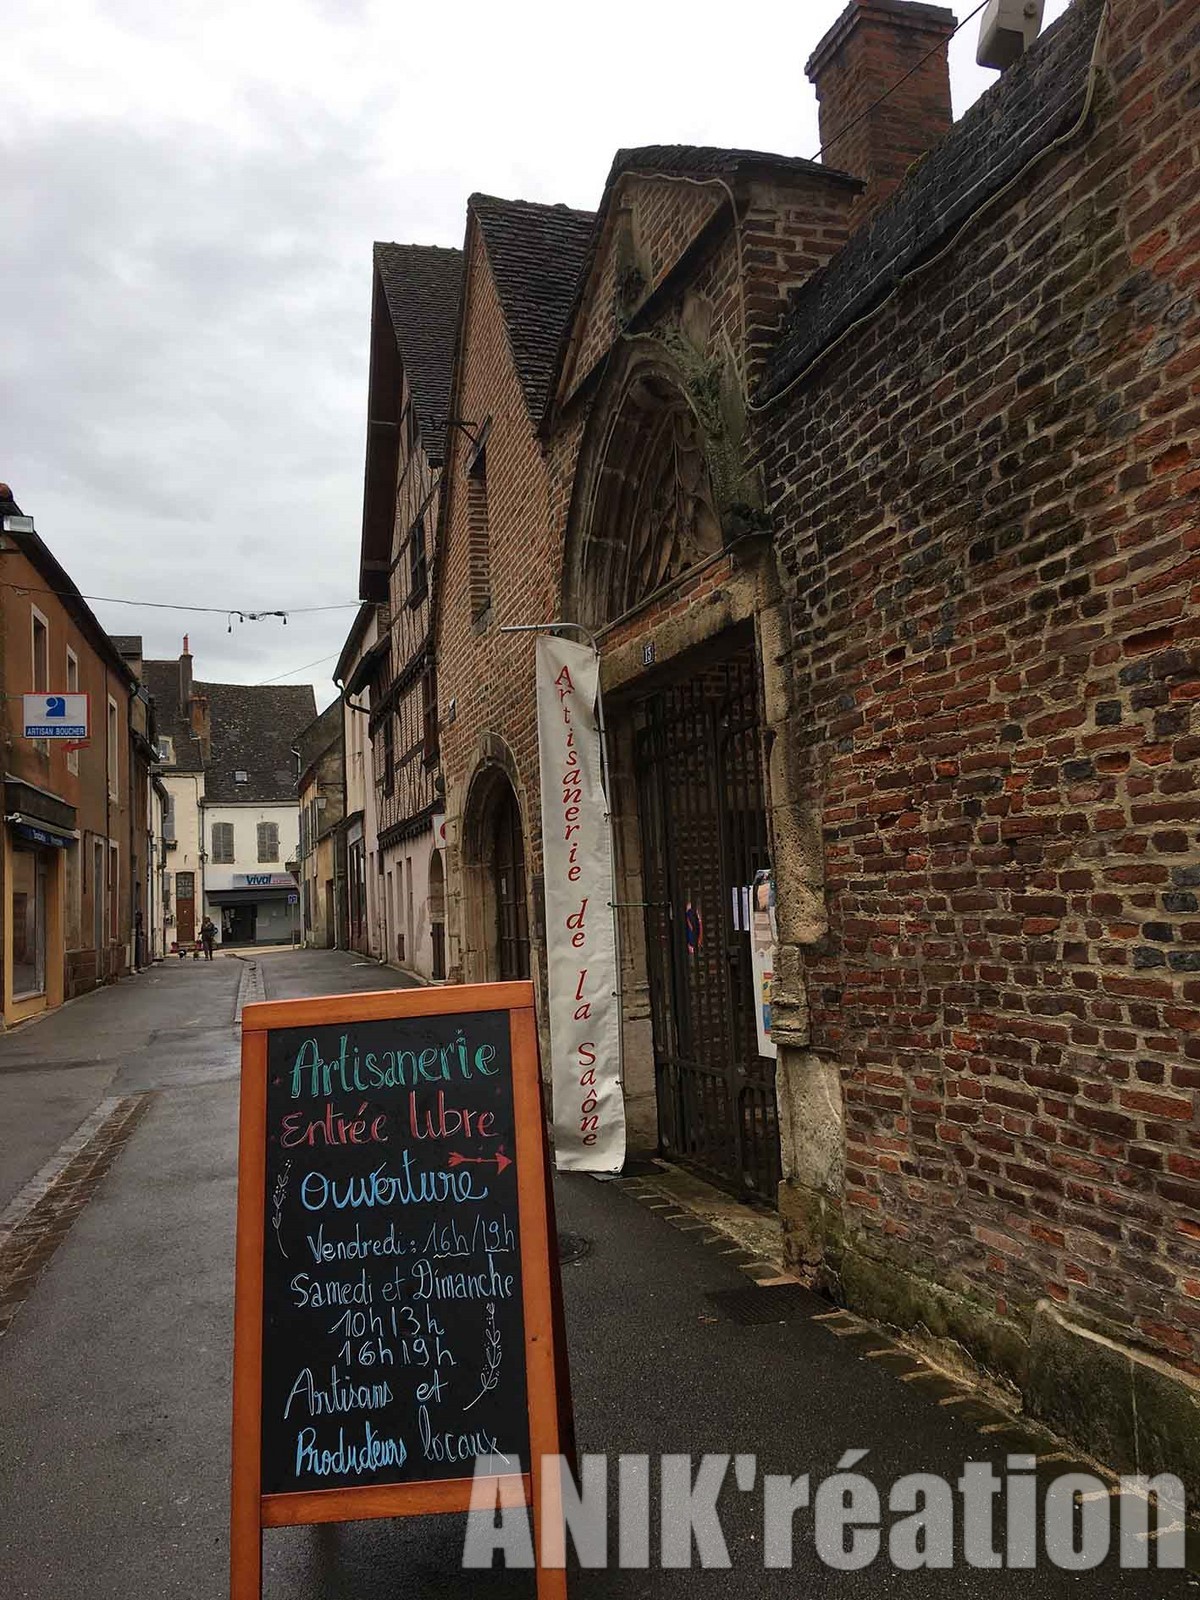 Artisanerie
Entrée libre
Ouverture
Vendredi: 16h/19h
Samedi et Dimanche
10h 13h
16h 19h
Artisans et
Producteurs locaux
Artisanerie de la Saône
15
ARTISAN BOUCHER
Vival
ANIK'réation